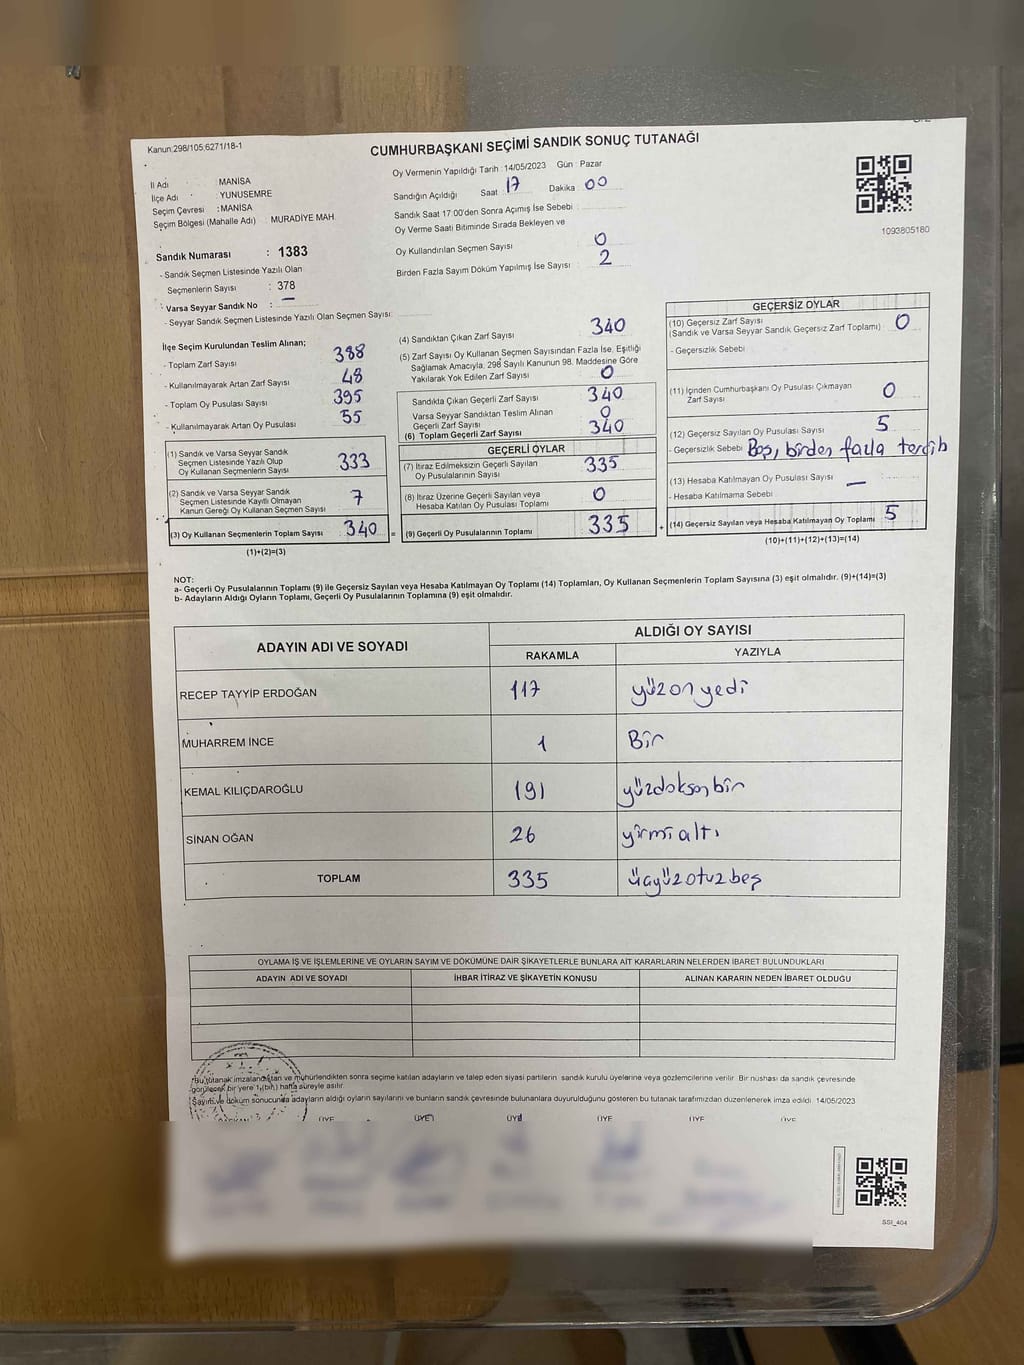 Kanun:298/105;6271/18-1
CUMHURBAŞKANI SEÇİMİ SANDIK SONUÇ TUTANAĞI
İl Adı : MANİSA
İlçe Adı : YUNUSEMRE
Seçim Çevresi : MANİSA
Seçim Bölgesi (Mahalle Adı) MURADİYE MAH.
Sandık Numarası : 1383
- Sandık Seçmen Listesinde Yazılı Olan
Seçmenlerin Sayısı : 378
Varsa Seyyar Sandık No : —
- Seyyar Sandık Seçmen Listesinde Yazılı Olan Seçmen Sayısı:
Oy Vermenin Yapıldığı Tarih : 14/05/2023 Gün : Pazar
Sandığın Açıldığı Saat 17 Dakika 00
Sandık Saat 17:00'den Sonra Açımış İse Sebebi :
Oy Verme Saati Bitiminde Sırada Bekleyen ve
Oy Kullandırılan Seçmen Sayısı 0
Birden Fazla Sayım Döküm Yapılmış İse Sayısı : 2
1093805180
İlçe Seçim Kurulundan Teslim Alınan;
- Toplam Zarf Sayısı 388
- Kullanılmayarak Artan Zarf Sayısı 48
- Toplam Oy Pusulası Sayısı 395
- Kullanılmayarak Artan Oy Pusulası 55
(1) Sandık ve Varsa Seyyar Sandık
Seçmen Listesinde Yazılı Olup
Oy Kullanan Seçmenlerin Sayısı 333
(2) Sandık ve Varsa Seyyar Sandık
Seçmen Listesinde Kayıtlı Olmayan
Kanun Gereği Oy Kullanan Seçmen Sayısı 7
(3) Oy Kullanan Seçmenlerin Toplam Sayısı 340 =
(1)+(2)=(3)
(4) Sandıktan Çıkan Zarf Sayısı 340
(5) Zarf Sayısı Oy Kullanan Seçmen Sayısından Fazla İse, Eşitliği
Sağlamak Amacıyla, 298 Sayılı Kanunun 98. Maddesine Göre
Yakılarak Yok Edilen Zarf Sayısı 0
Sandıkta Çıkan Geçerli Zarf Sayısı 340
Varsa Seyyar Sandıktan Teslim Alınan
Geçerli Zarf Sayısı 0
(6) Toplam Geçerli Zarf Sayısı 340
GEÇERLİ OYLAR
(7) İtiraz Edilmeksizin Geçerli Sayılan
Oy Pusulalarının Sayısı 335
(8) İtiraz Üzerine Geçerli Sayılan veya
Hesaba Katılan Oy Pusulası Toplamı 0
(9) Geçerli Oy Pusulalarının Toplamı 335 +
GEÇERSİZ OYLAR
(10) Geçersiz Zarf Sayısı
(Sandık ve Varsa Seyyar Sandık Geçersiz Zarf Toplamı) : 0
- Geçersizlik Sebebi
(11) İçinden Cumhurbaşkanı Oy Pusulası Çıkmayan
Zarf Sayısı 0
(12) Geçersiz Sayılan Oy Pusulası Sayısı 5
- Geçersizlik Sebebi Boş, birden fazla tercih
(13) Hesaba Katılmayan Oy Pusulası Sayısı : —
- Hesaba Katılmama Sebebi
(14) Geçersiz Sayılan veya Hesaba Katılmayan Oy Toplamı 5
(10)+(11)+(12)+(13)=(14)
NOT:
a- Geçerli Oy Pusulalarının Toplamı (9) ile Geçersiz Sayılan veya Hesaba Katılmayan Oy Toplamı (14) Toplamları, Oy Kullanan Seçmenlerin Toplam Sayısına (3) eşit olmalıdır. (9)+(14)=(3)
b- Adayların Aldığı Oyların Toplamı, Geçerli Oy Pusulalarının Toplamına (9) eşit olmalıdır.
ADAYIN ADI VE SOYADI ALDIĞI OY SAYISI
RAKAMLA YAZIYLA
RECEP TAYYİP ERDOĞAN 117 yüzonyedi
MUHARREM İNCE 1 Bir
KEMAL KILIÇDAROĞLU 191 yüzdoksanbir
SİNAN OĞAN 26 yirmialtı
TOPLAM 335 üçyüzotuzbeş
OYLAMA İŞ VE İŞLEMLERİNE VE OYLARIN SAYIM VE DÖKÜMÜNE DAİR ŞİKAYETLERLE BUNLARA AİT KARARLARIN NELERDEN İBARET BULUNDUKLARI
ADAYIN ADI VE SOYADI İHBAR İTİRAZ VE ŞİKAYETİN KONUSU ALINAN KARARIN NEDEN İBARET OLDUĞU
*Bu tutanak imzalandıktan ve mühürlendikten sonra seçime katılan adayların ve talep eden siyasi partilerin sandık kurulu üyelerine veya gözlemcilerine verilir. Bir nüshası da sandık çevresinde
görülecek bir yere 1 (bir) hafta süreyle asılır.
Sayım ve döküm sonucunda adayların aldığı oyların sayılarını ve bunların sandık çevresinde bulunanlara duyurulduğunu gösteren bu tutanak tarafımızdan düzenlenerek imza edildi. 14/05/2023
BAŞKAN ÜYE ÜYE ÜYE ÜYE ÜYE ÜYE
SSI_404